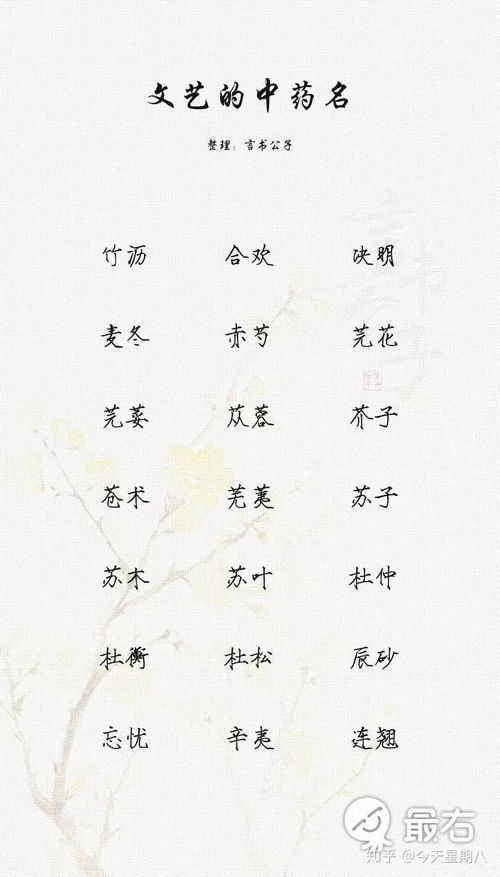 文艺的中药名
整理：言书公子
竹沥 合欢 决明
麦冬 赤芍 芫花
芫荽 苁蓉 芥子
苍术 芜荑 苏子
苏木 苏叶 杜仲
杜衡 杜松 辰砂
忘忧 辛夷 连翘
言书公子
最右
知乎 @今天星期八